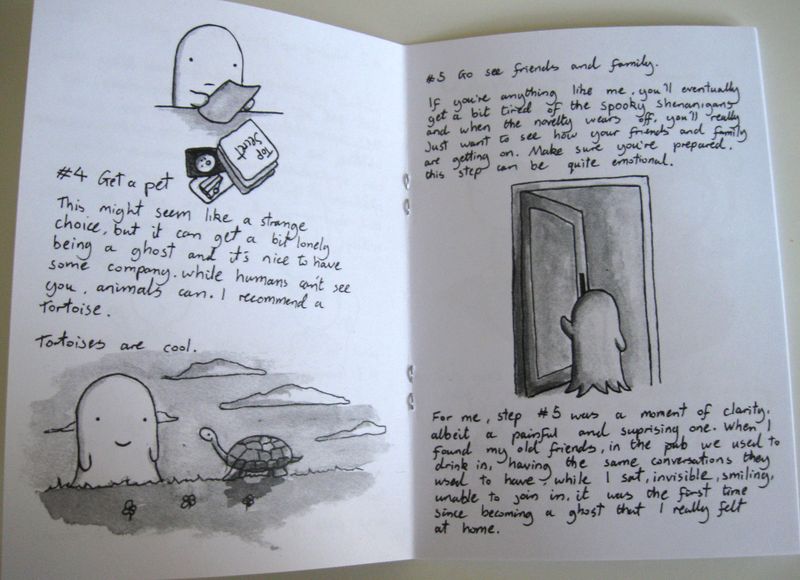 Top
Secret
#4 Get a pet
This might seem like a strange
choice, but it can get a bit lonely
being a ghost and it's nice to have
some company. While humans can't see
you, animals can. I recommend a
Tortoise.
Tortoises are cool.
#5 Go see friends and family.
If you're anything like me, you'll eventually
get a bit tired of the spooky shenanigans
and when the novelty wears off, you'll really
Just want to see how your friends and family
are getting on. Make sure you're prepared,
this step can be quite emotional.
For me, step #5 was a moment of clarity,
albeit a painful and suprising one. When I
found my old friends, in the pub we used to
drink in, having the same conversations they
used to have, while I sat, invisible, smiling,
unable to join in, it was the first time
since becoming a ghost that I really felt
at home.